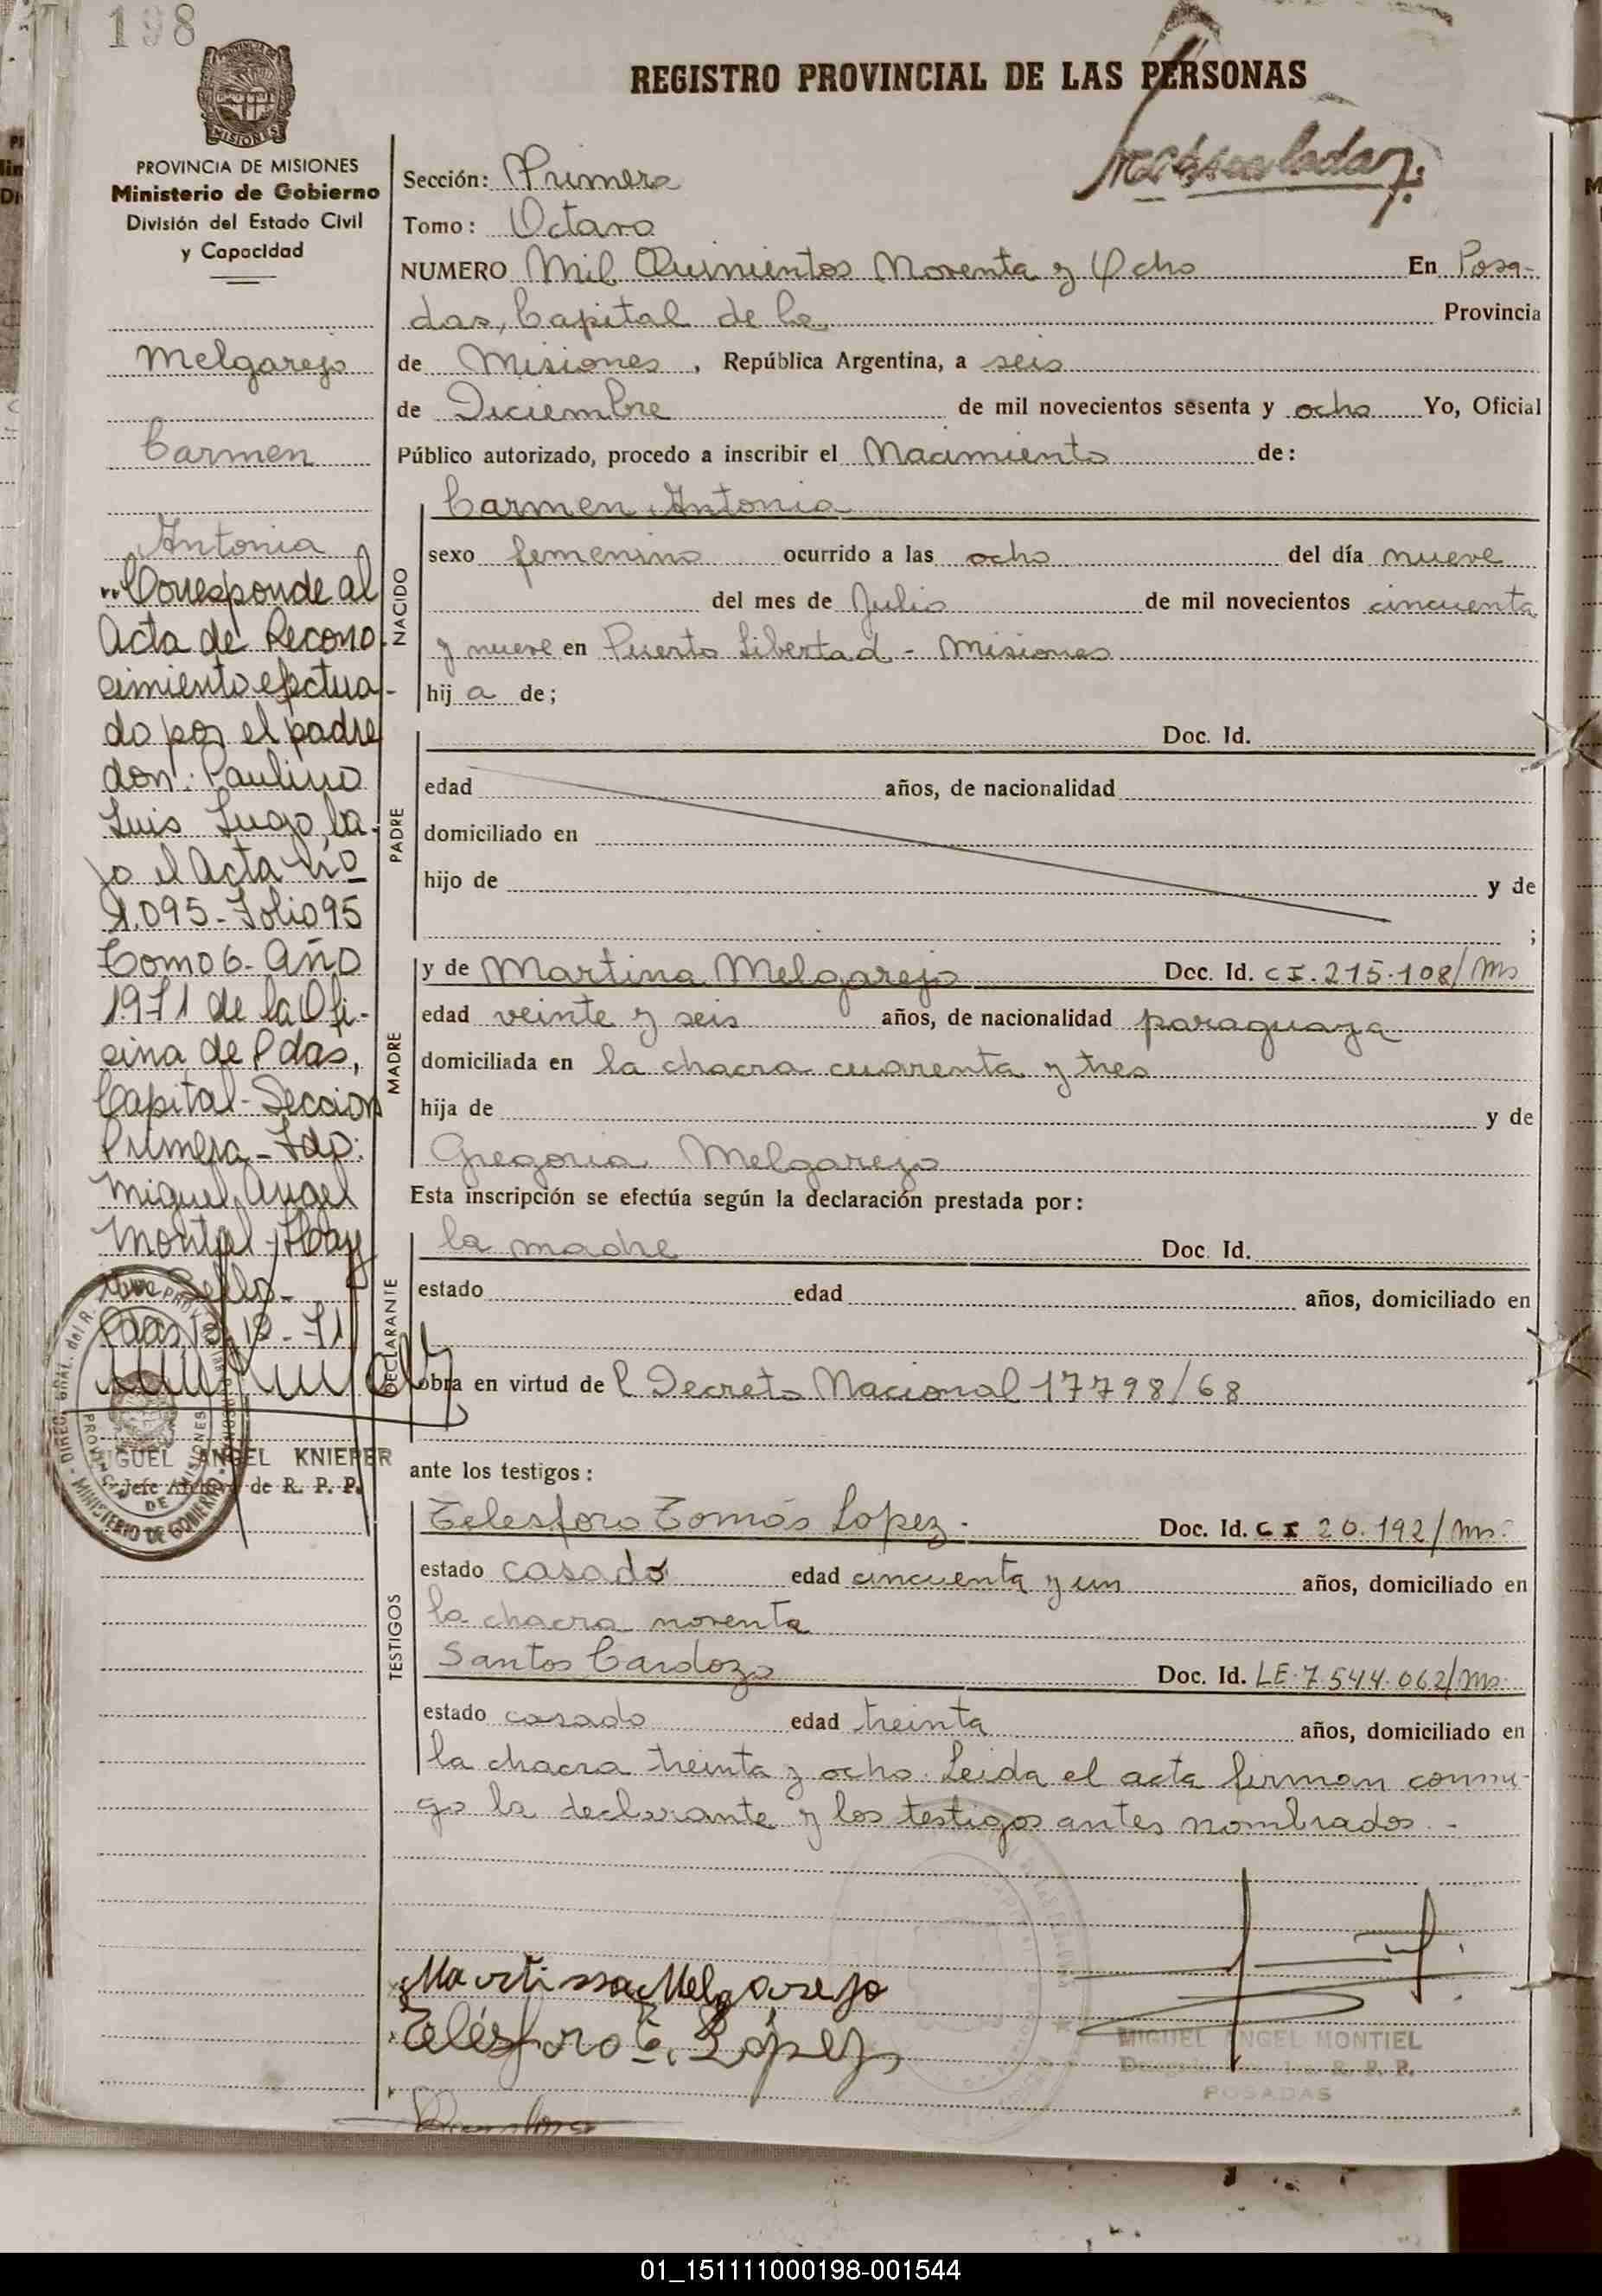 198
REGISTRO PROVINCIAL DE LAS PERSONAS
MISIONES
PROVINCIA DE MISIONES
Ministerio de Gobierno
División del Estado Civil
y Capacidad
Melgarejo
Carmen
Antonia
"Corresponde al
Acta de Recono-
cimiento efectua-
do por el padre
don: Paulino
Luis Lugo, ba-
jo el Acta Nº
1.095-Folio 95
Tomo 6- Año
1971 de la Ofi-
cina de Pdas,
Capital-Sección
Primera- Fdo:
Miguel Angel
Montiel- Hay
Sello-
Pdas 12-71
MIGUEL ANGEL KNIEPER
Jefe Archivo de R. P. P.
Sección: Primera
Tomo: Octavo
NUMERO Mil Quinientos Noventa y Ocho En Posa-
das, Capital de la Provincia
de Misiones, República Argentina, a seis
de Diciembre de mil novecientos sesenta y ocho Yo, Oficial
Público autorizado, procedo a inscribir el Nacimiento de:
NACIDO
Carmen Antonia
sexo femenino ocurrido a las ocho del día nueve
del mes de Julio de mil novecientos cincuenta
y nueve en Puerto Libertad - Misiones
hij a de;
PADRE
Doc. Id.
edad años, de nacionalidad
domiciliado en
hijo de y de
;
MADRE
y de Martina Melgarejo Doc. Id. CI. 215.108/Ms
edad veinte y seis años, de nacionalidad paraguaya
domiciliada en la chacra cuarenta y tres
hija de y de
Gregoria Melgarejo
Esta inscripción se efectúa según la declaración prestada por:
DECLARANTE
la madre Doc. Id.
estado edad años, domiciliado en
obra en virtud de l Decreto Nacional 17798/68
ante los testigos:
TESTIGOS
Telesforo Tomás Lopez. Doc. Id. CI 20.192/Ms.
estado casado edad cincuenta y un años, domiciliado en
la chacra noventa
Santos Cardozo Doc. Id. LE. 7.544.062/Ms.
estado casado edad treinta años, domiciliado en
la chacra treinta y ocho. Leida el acta firman conmi-
go la declarante y los testigos antes nombrados.-
Martina Melgarejo
Telésforo T. López
MIGUEL ANGEL MONTIEL
R. P. P.
POSADAS
01_151111000198-001544